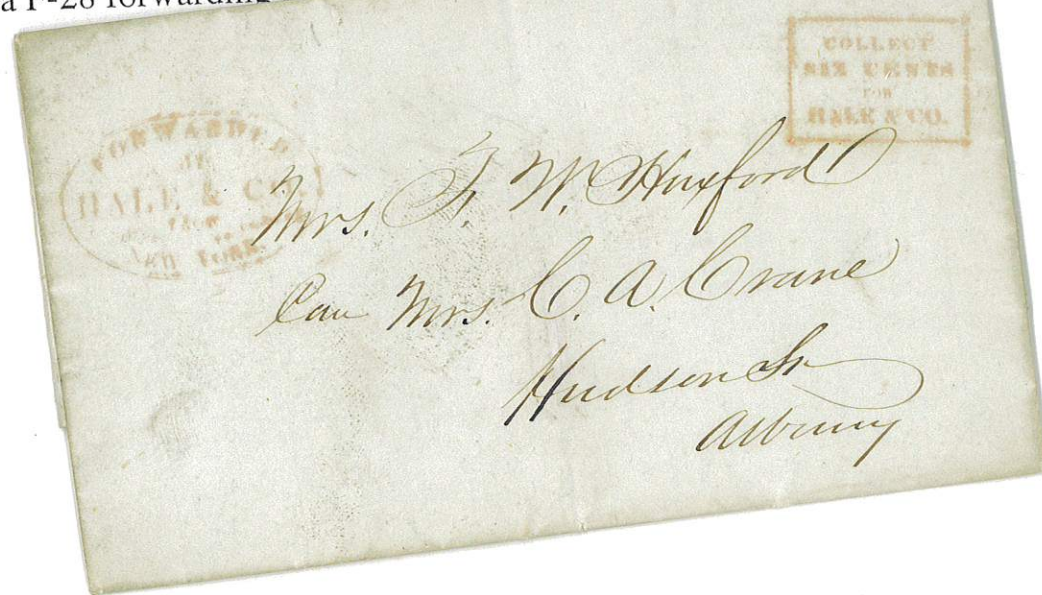 a F-28 forwarding
COLLECT
SIX CENTS
FOR
HALE & CO.
FORWARDED
BY
HALE & CO.
FROM
NEW YORK
Mrs. F. W. Huxford
Care Mrs. C. A. Crane
Hudson St
Albany